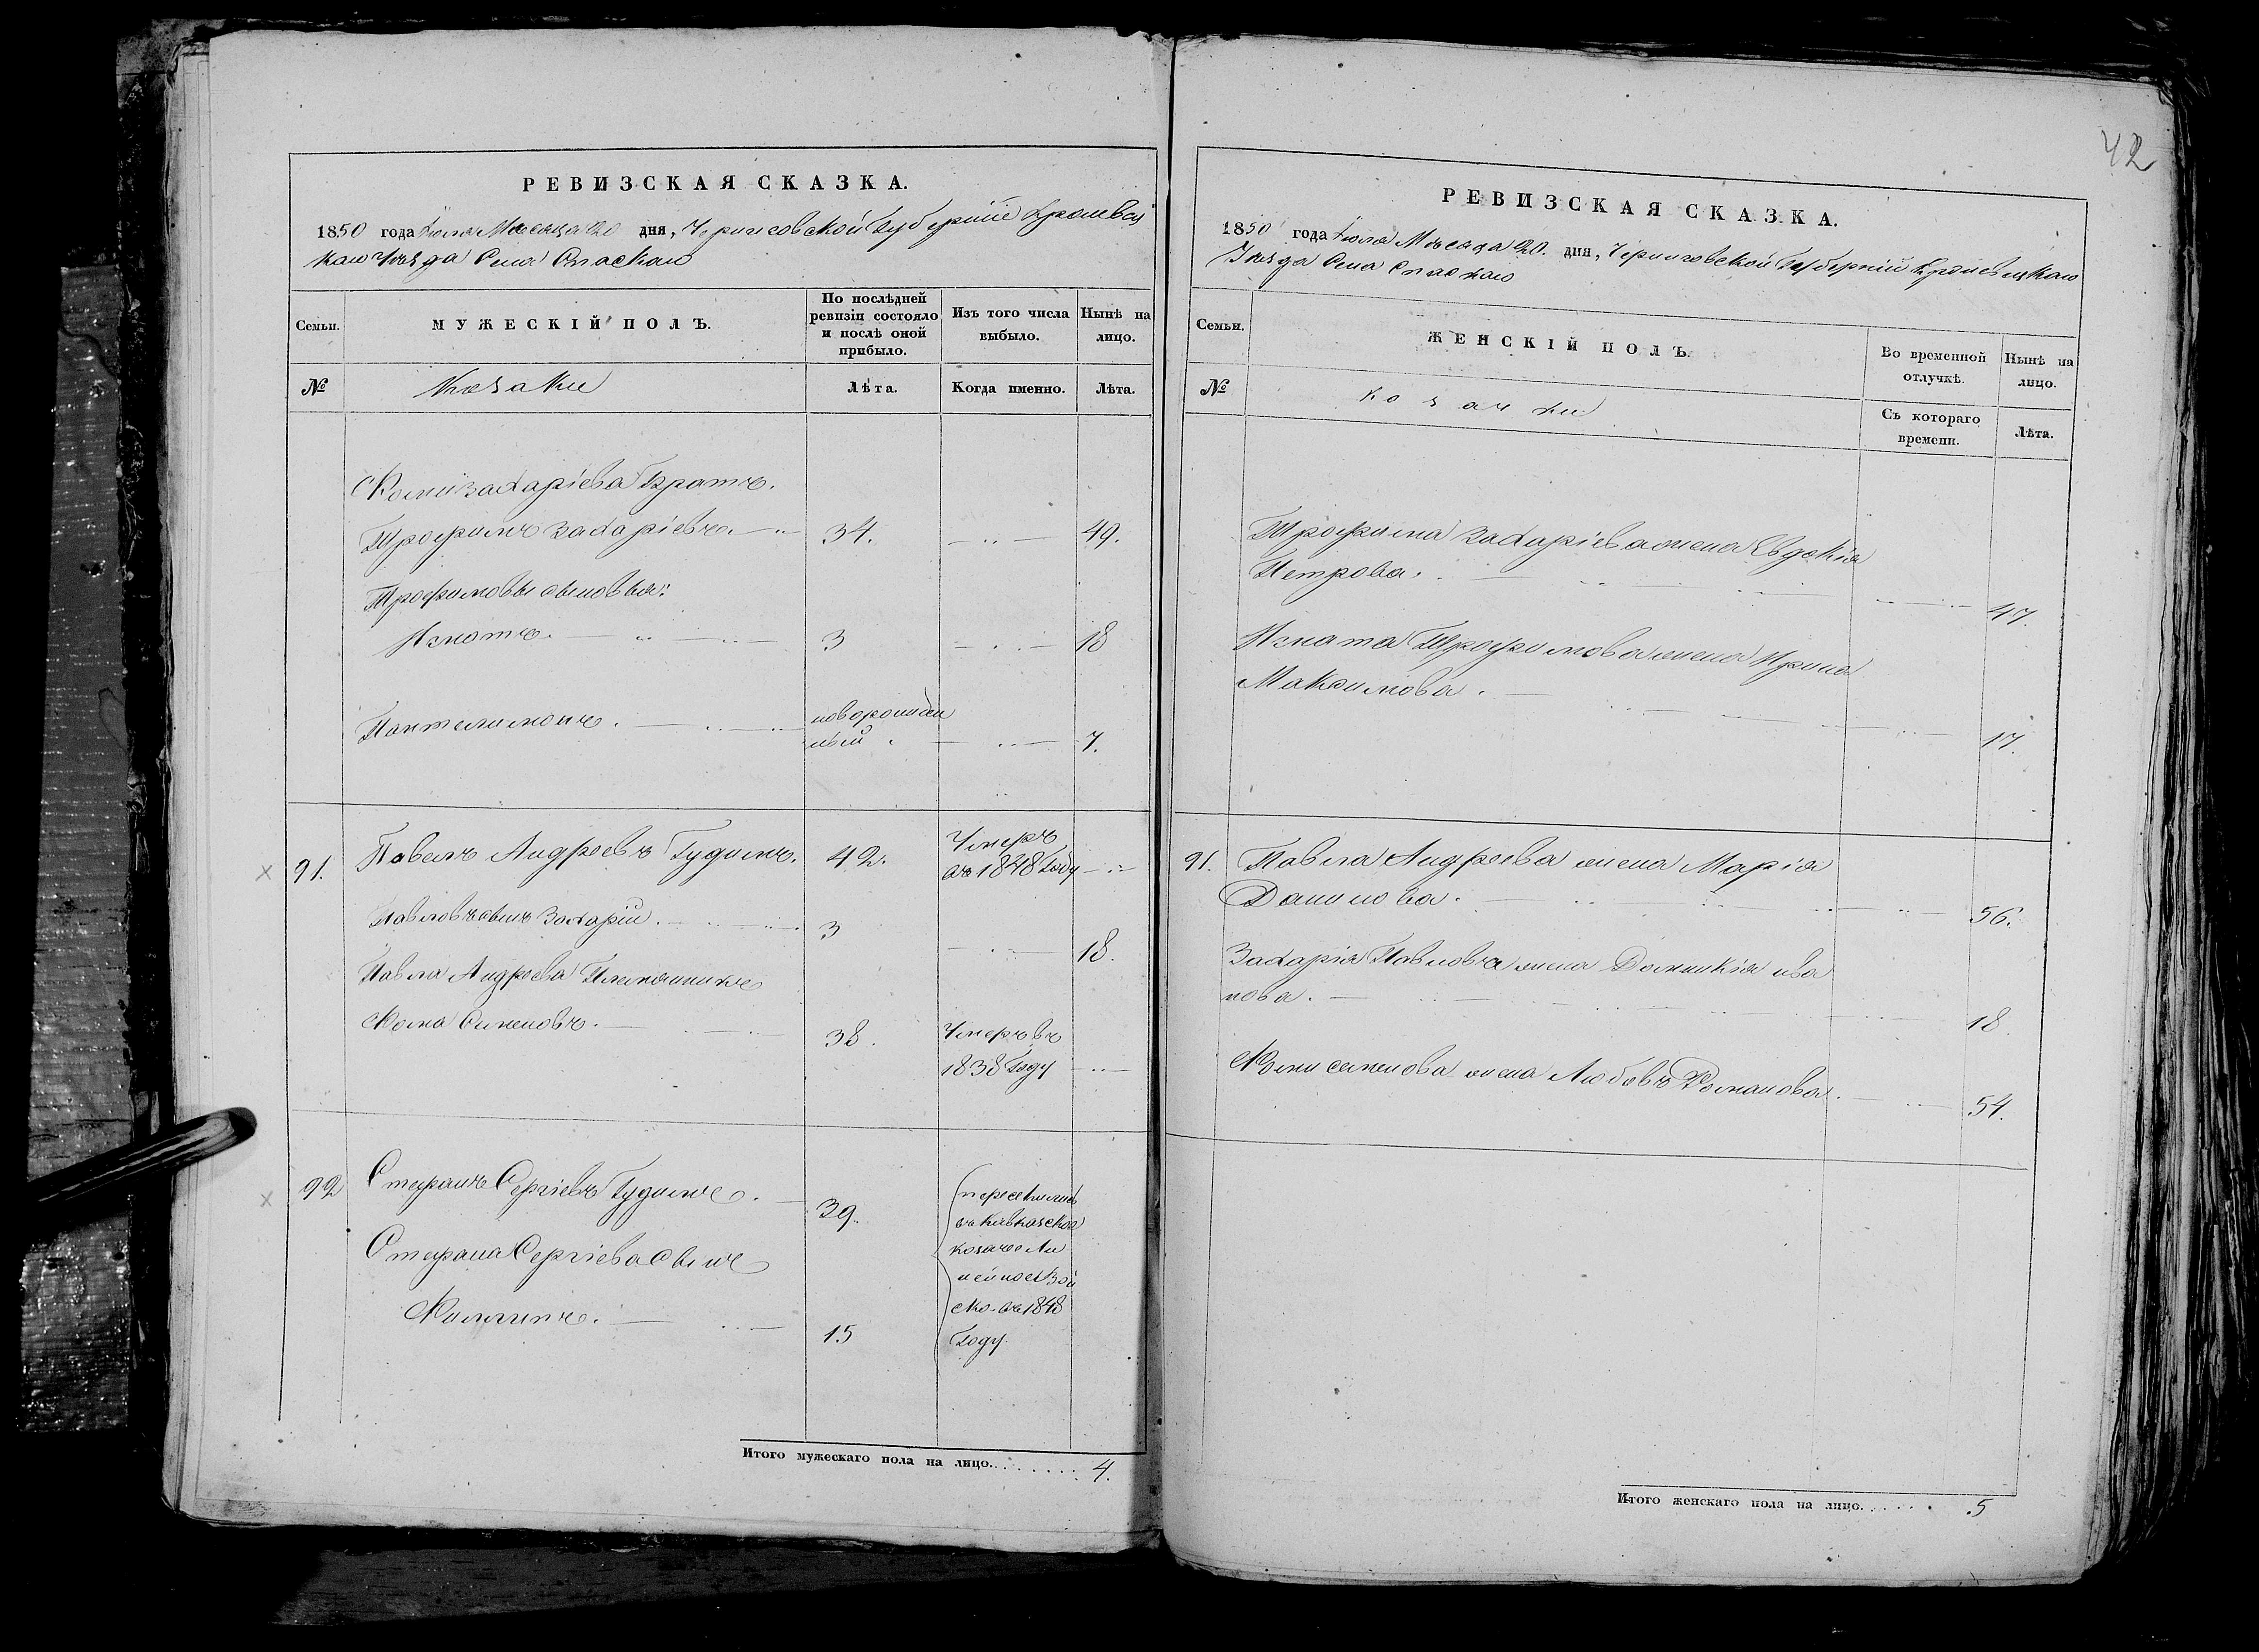 42
РЕВИЗСКАЯ СКАЗКА.
1850 года Іюля Месяца 20 дня, Черниговской Губерніи Кролевец
каго Уезда Села Спаскаго
Семьи.
МУЖЕСКІЙ ПОЛЪ.
По послѣдней ревизіи состояло и послѣ оной прибыло.
Изъ того числа выбыло.
Нынѣ на лицо.
№
Козаки
Лѣта.
Когда именно.
Лѣта.
Фомы Захаріева Братъ.
Трофимъ Захаріевъ. 34. 49.
Трофимовы сыновья:
Игнатъ. 3 18
Пантелимонъ. новорожден
ный. 7.
91. Павелъ Андреевъ Гудимъ. 42. Умеръ
въ 1848 Году
Павловъ сынъ Захарій. 3 18.
Павла Андреева Племянникъ
Фома Семеновъ. 38. Умеръ въ
1838 Году
92 Стефанъ Сергіевъ Гудимъ. 39. переселились
въ Кавказское
козачее Ли
нейное Вой
ско въ 1848
Году.
Стефана Сергіева сынъ
Филипъ. 15
Итого мужескаго пола на лицо. 4.
РЕВИЗСКАЯ СКАЗКА.
1850 года Іюля Месяца 20. дня, Черниговской Губерніи Кролевецкаго
Уезда Села Спаскаго
Семьи.
ЖЕНСКІЙ ПОЛЪ.
Во временной отлучкѣ.
Нынѣ на лицо.
№
Козачки
Съ котораго времени.
Лѣта.
Трофима Захаріева жена Евдокія
Петрова. 47.
Игната Трофимова жена Ирина
Максимова. 17.
91. Павла Андреева жена Марія
Данилова. 56.
Захарія Павлова жена Домникія ива
нова. 18.
Фомы семенова жена Любовь Романова. 54.
Итого женскаго пола на лицо. 5